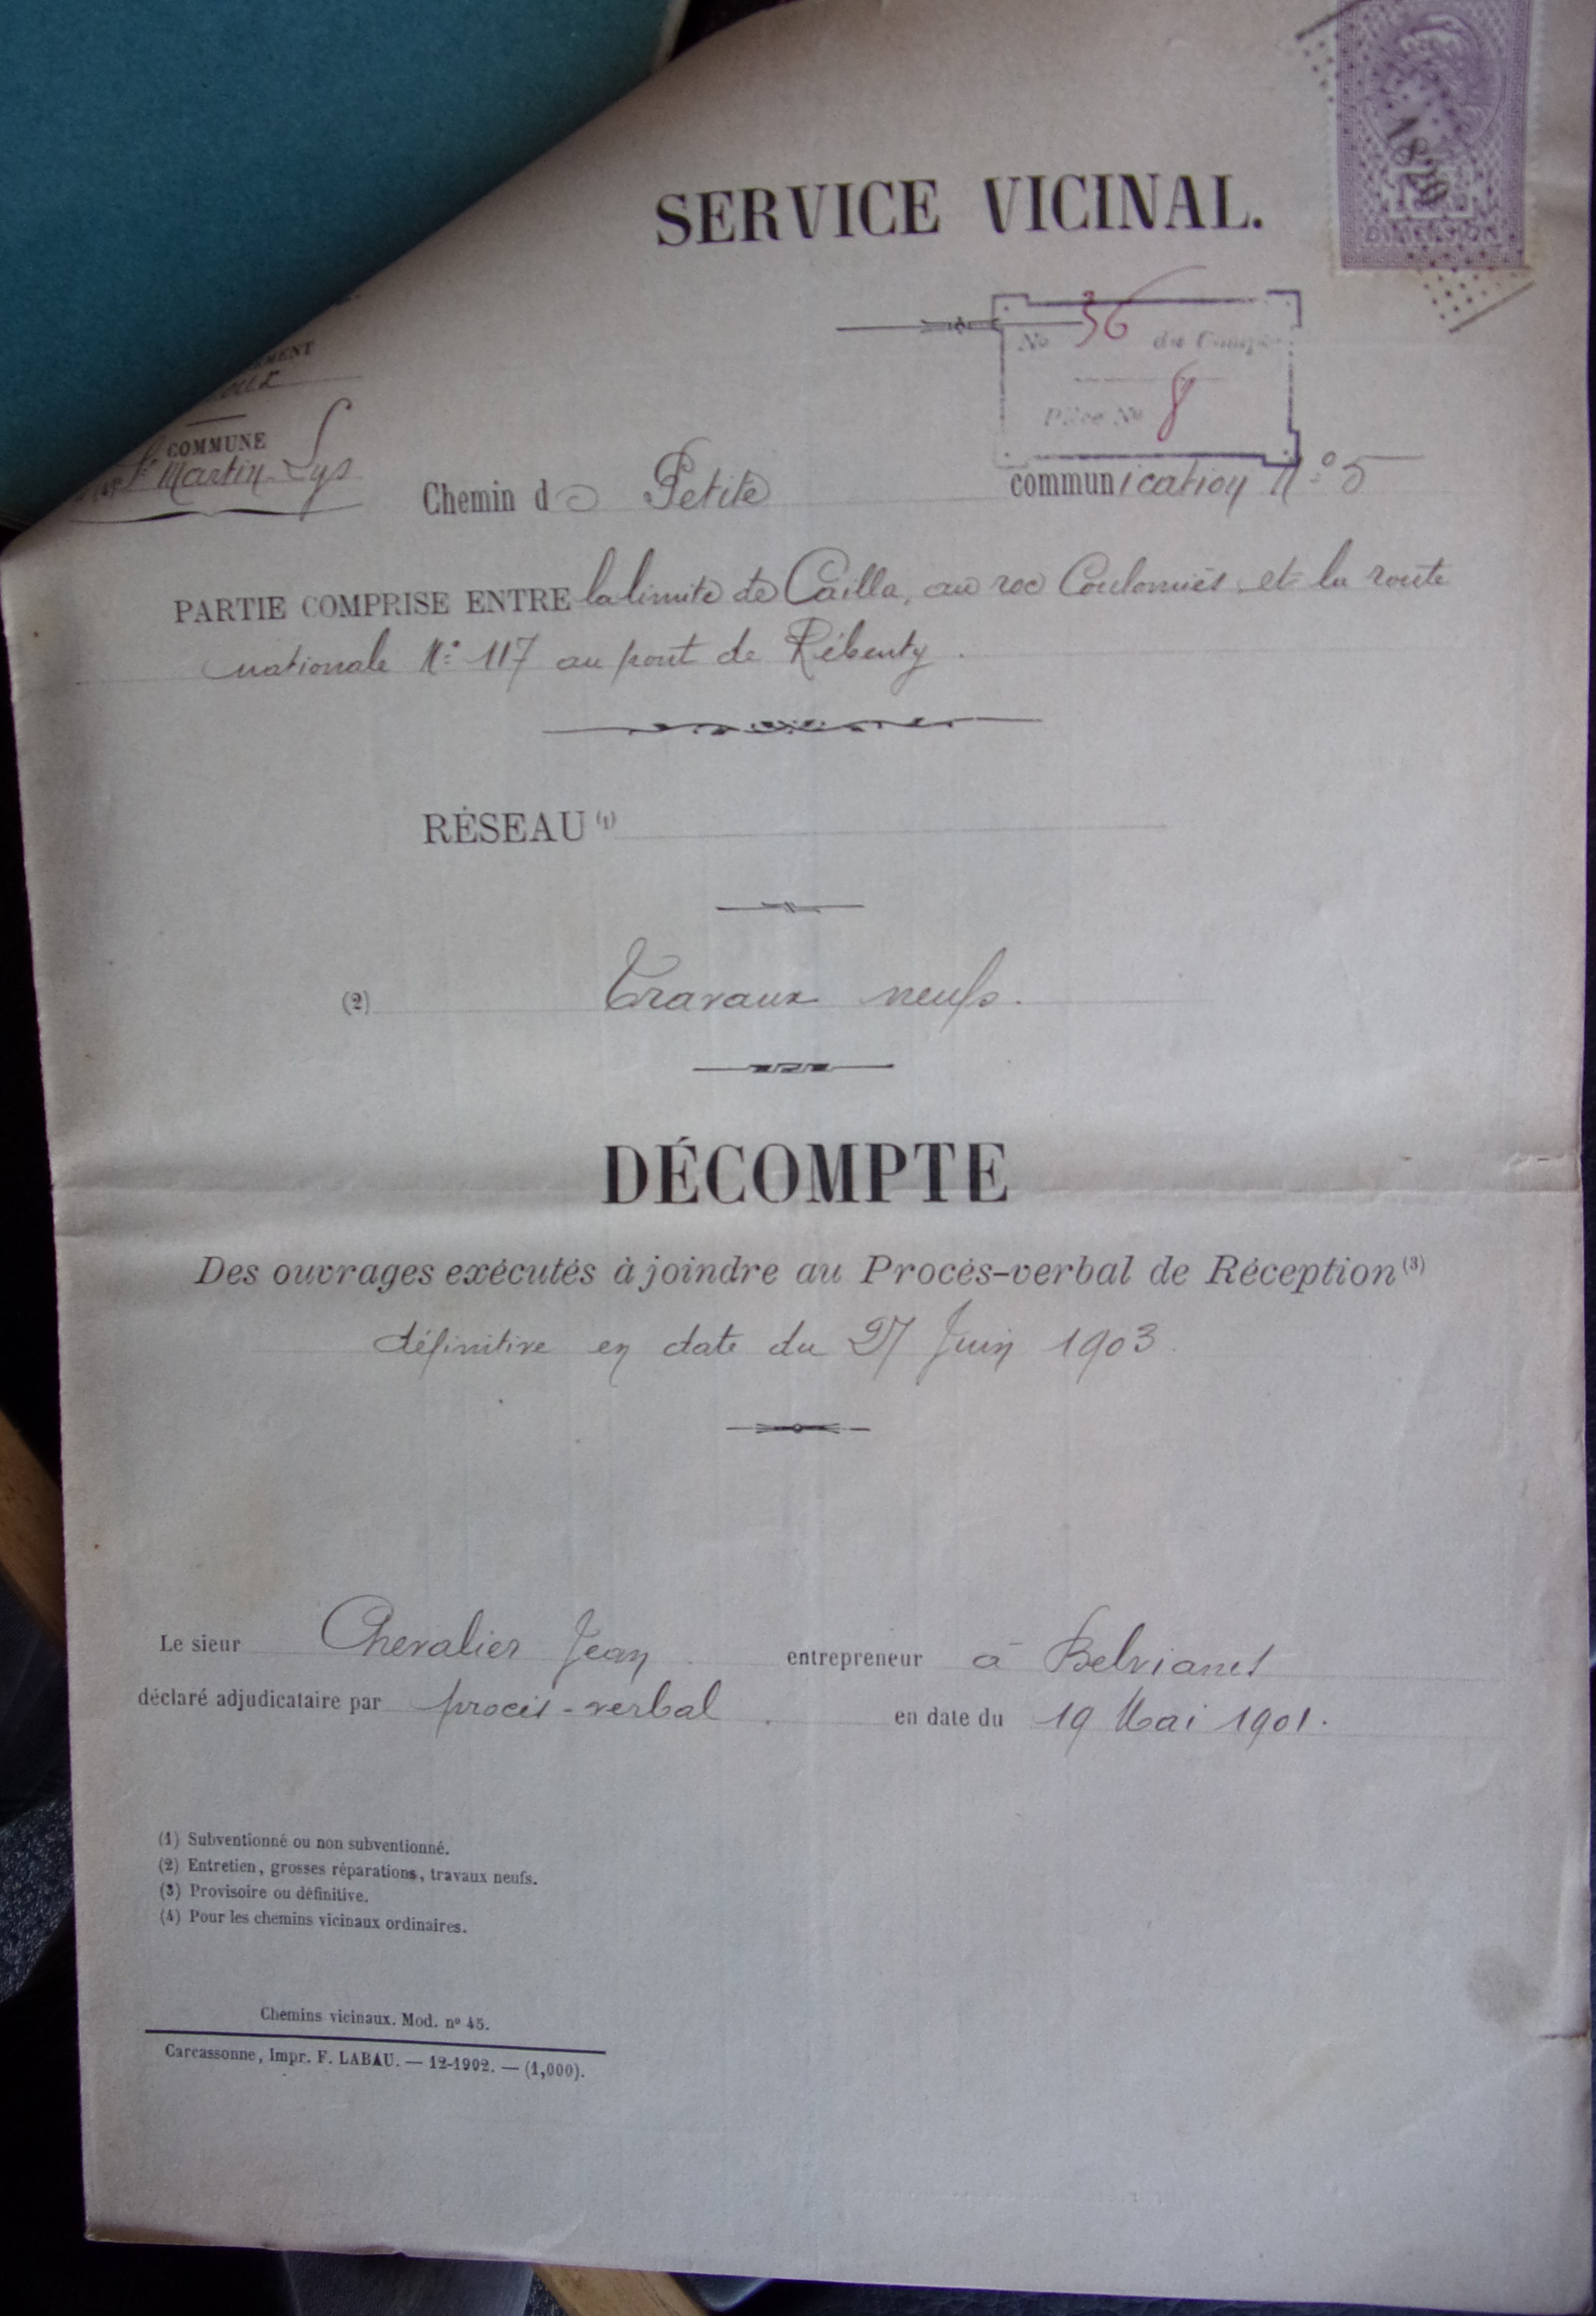 SERVICE VICINAL.
DIMENSION
No 36 du Compte
Pièce No 8
COMMUNE
St Martin-Lys
Chemin de Petite communication N° 5
PARTIE COMPRISE ENTRE la limite de Cailla, au roc Coulomiès et la route
nationale N° 117 au pont de Rébenty.
RÉSEAU (1)
(2) Travaux neufs.
DÉCOMPTE
Des ouvrages exécutés à joindre au Procès-verbal de Réception (3)
définitive en date du 27 Juin 1903
Le sieur Chevalier Jean entrepreneur à Belvianes
déclaré adjudicataire par procès-verbal en date du 19 Mai 1901.
(1) Subventionné ou non subventionné.
(2) Entretien, grosses réparations, travaux neufs.
(3) Provisoire ou définitive.
(4) Pour les chemins vicinaux ordinaires.
Chemins vicinaux. Mod. nº 45.
Carcassonne, Impr. F. LABAU. — 12-1902. — (1,000).